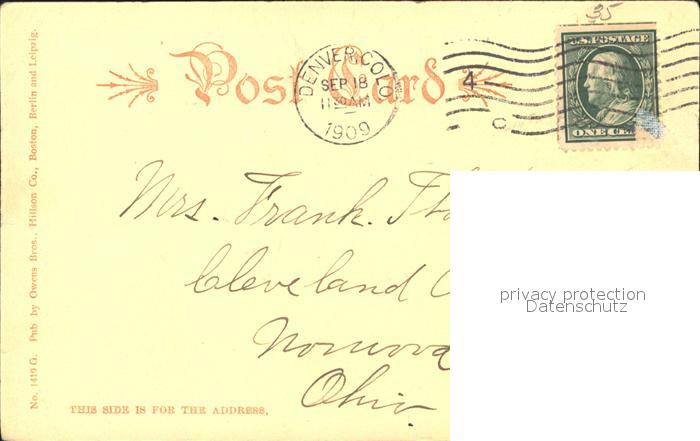 35
Post Card
DENVER, COLO.
SEP 18
11 30 AM
1909
4
C
U.S. POSTAGE
ONE CE
Mrs. Frank. Th
Cleveland
Norwova
Ohio
privacy protection
Datenschutz
THIS SIDE IS FOR THE ADDRESS.
No. 1419 G. Pub by Owens Bros., Hillson Co., Boston, Berlin and Leipzig.